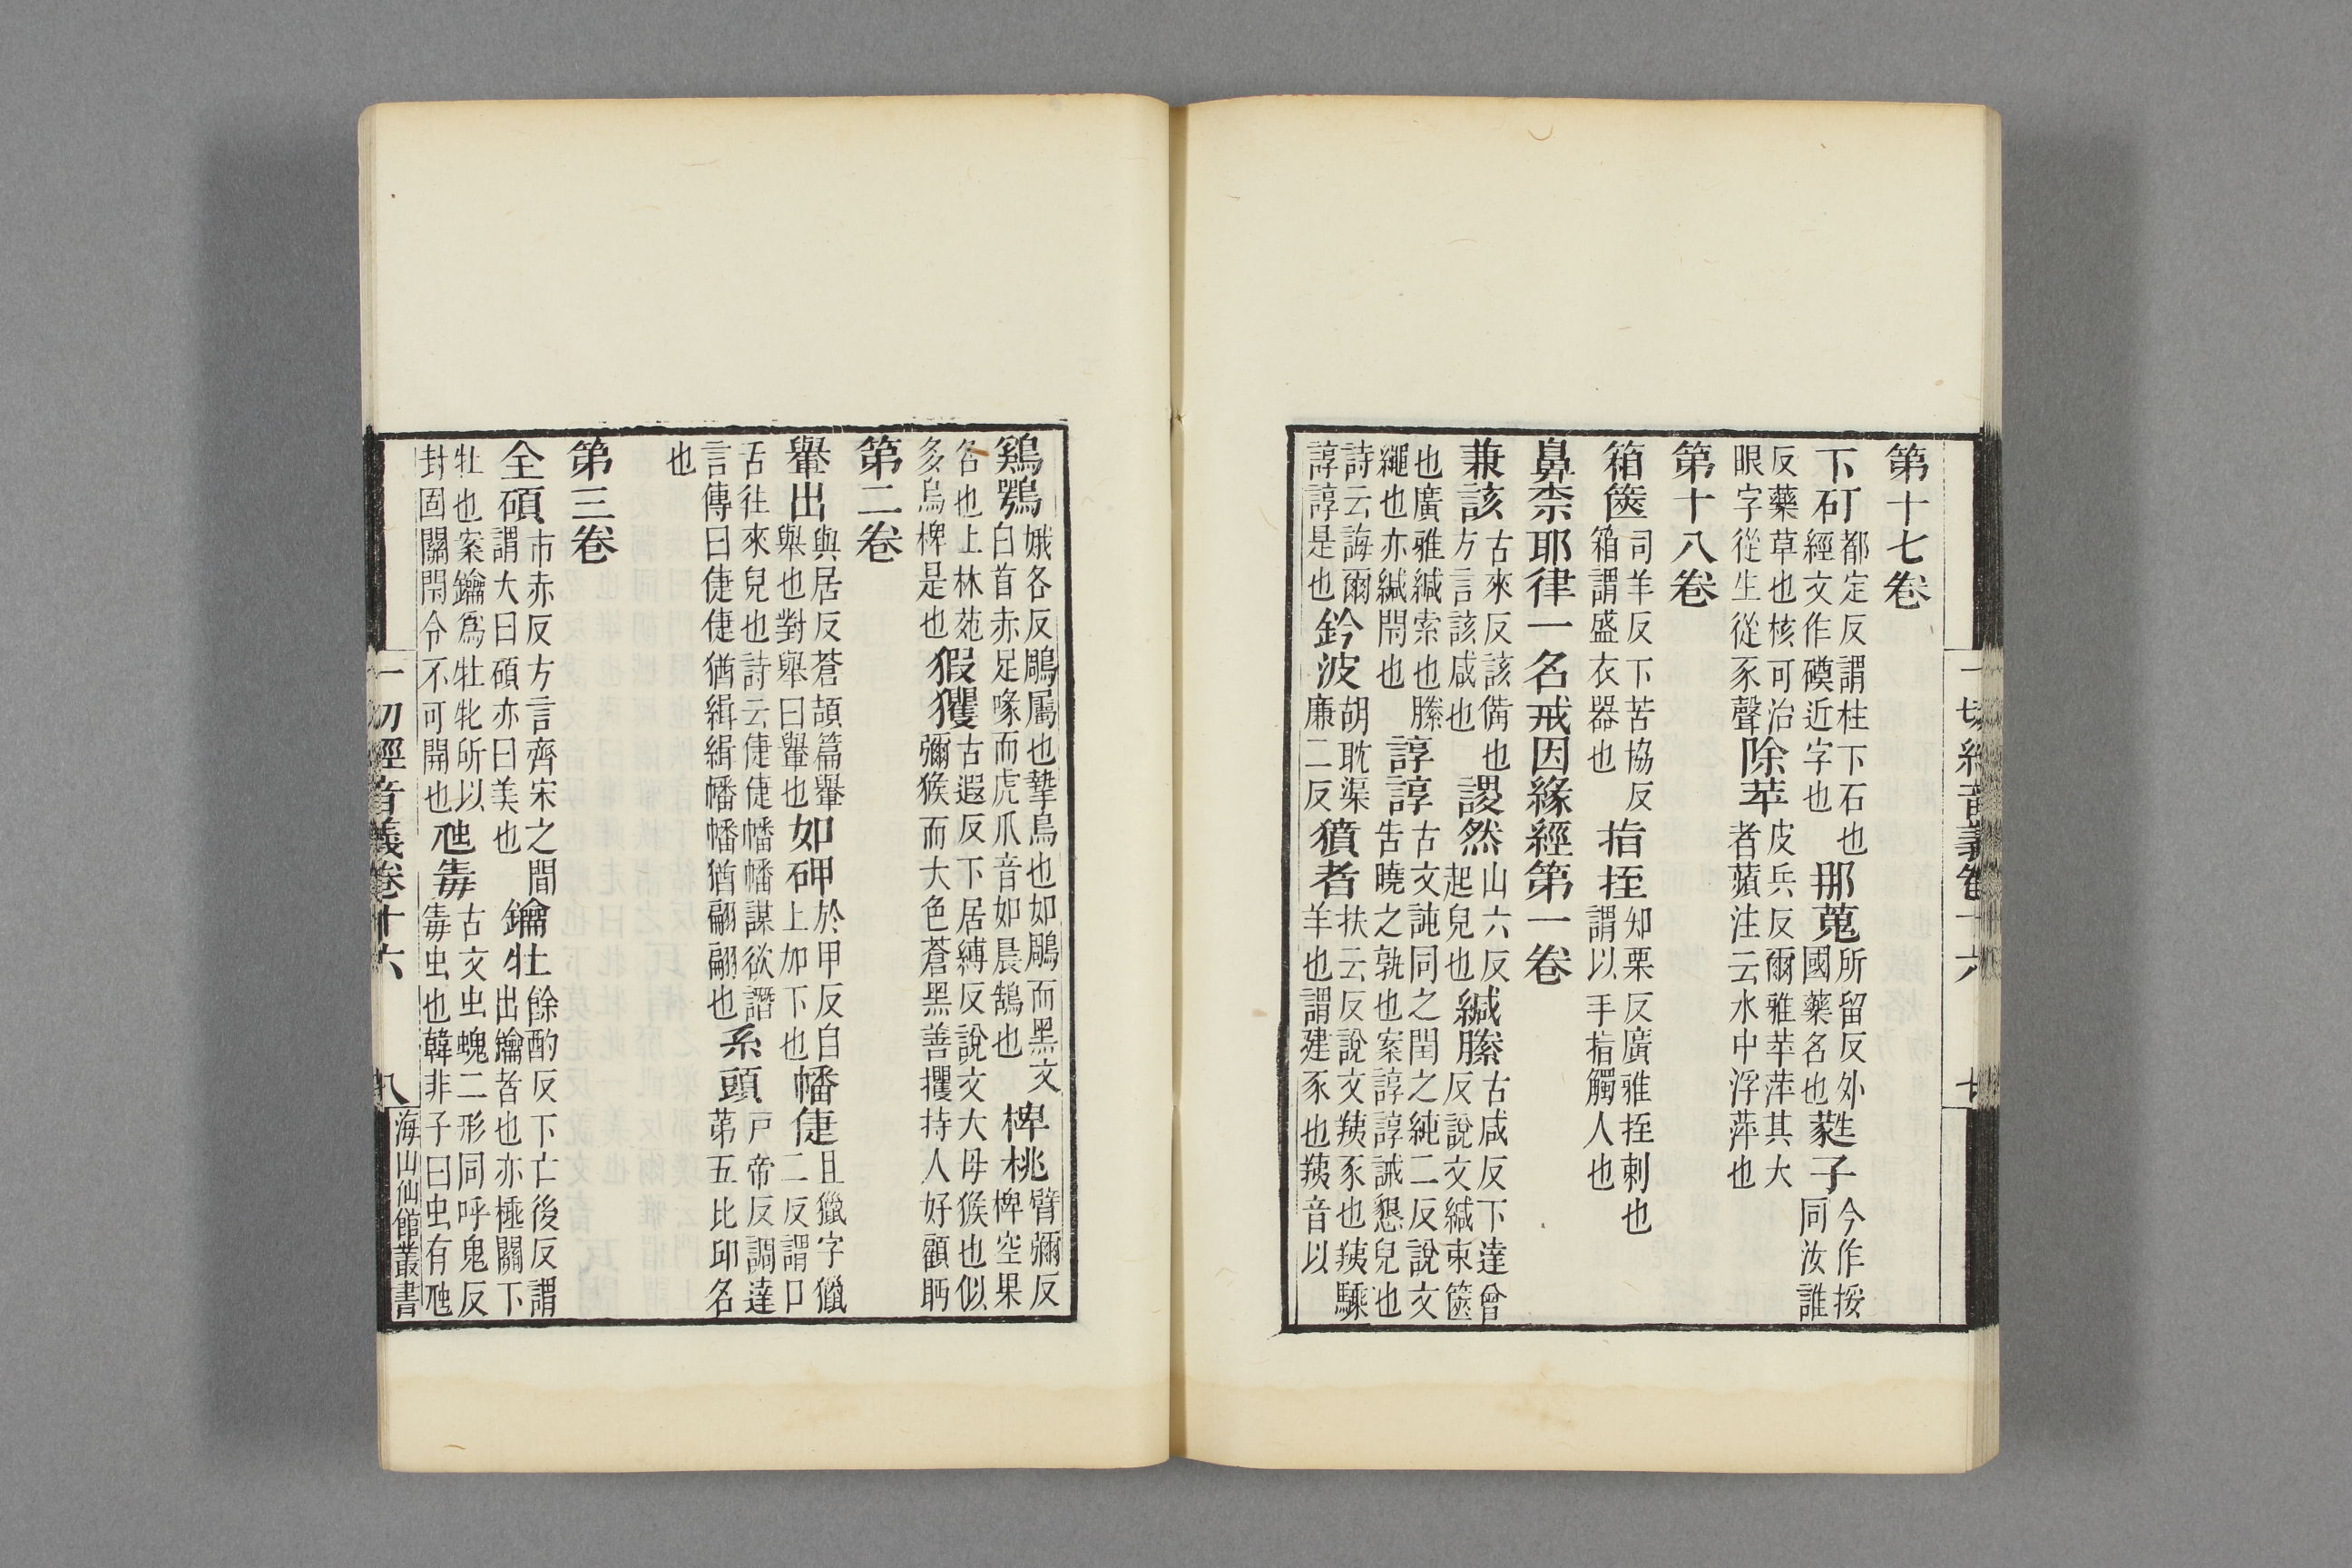 一切經音義卷十六 七
第十七卷
下矴都定反謂柱下石也經文作磸近字也那蒐所留反外國藥名也蕤子今作桵同汝誰
反藥草也核可治眼字從生從豕聲除苹皮兵反爾雅苹蓱其大者蘋注云水中浮蓱也
第十八卷
箱篋司羊反下苦協反箱謂盛衣器也指挃知栗反廣雅挃刺也謂以手指觸人也
鼻柰耶律一名戒因緣經第一卷
兼該古來反該備也方言該咸也謖然山六反起皃也緘縢古咸反下達曾反說文緘束篋
也廣雅緘索也縢繩也亦緘閉也諄諄古文訰同之閏之純二反說文告曉之孰也案諄諄誠懇皃也
詩云誨爾諄諄是也鈐波胡耽渠廉二反獖者扶云反說文羠豕也羠騬羊也謂建豕也羠音以
鷄鶚娥各反鵰屬也摯鳥也如鵰而黑文白首赤足喙而虎爪音如晨鵠也椑桃臂彌反椑空果
名也上林苑多烏椑是也猳玃古遐反下居縛反說文大母猴也似彌猴而大色蒼黑善攫持人好顧眄
第二卷
轝出與居反蒼頡篇轝舉也對舉曰轝也如砷於甲反自上加下也幡倢且獵字獵二反謂口
舌往來皃也詩云倢倢幡幡謀欲譖言傳曰倢倢猶緝緝幡幡猶翩翩也系頭戸帝反調達第五比邱名
也
第三卷
全碩市赤反方言齊宋之間謂大曰碩亦曰美也鑰牡餘酌反下亡後反謂出鑰者也亦極關下
牡也案鑰爲牡牝所以封固關閉令不可開也虺毒古文虫螝二形同呼鬼反毒虫也韓非子曰虫有虺
一切經音義卷十六 八 海山仙館叢書